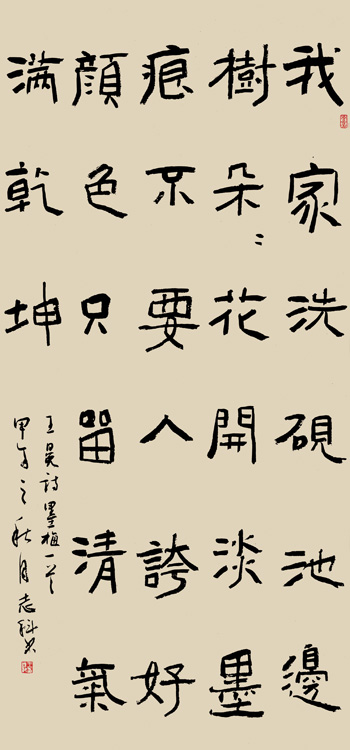 我家洗硯池邊
樹朵〻花開淡墨
痕不要人誇好
顏色只留清氣
滿乾坤
王冕詩墨梅一首
甲午之秋月志科书